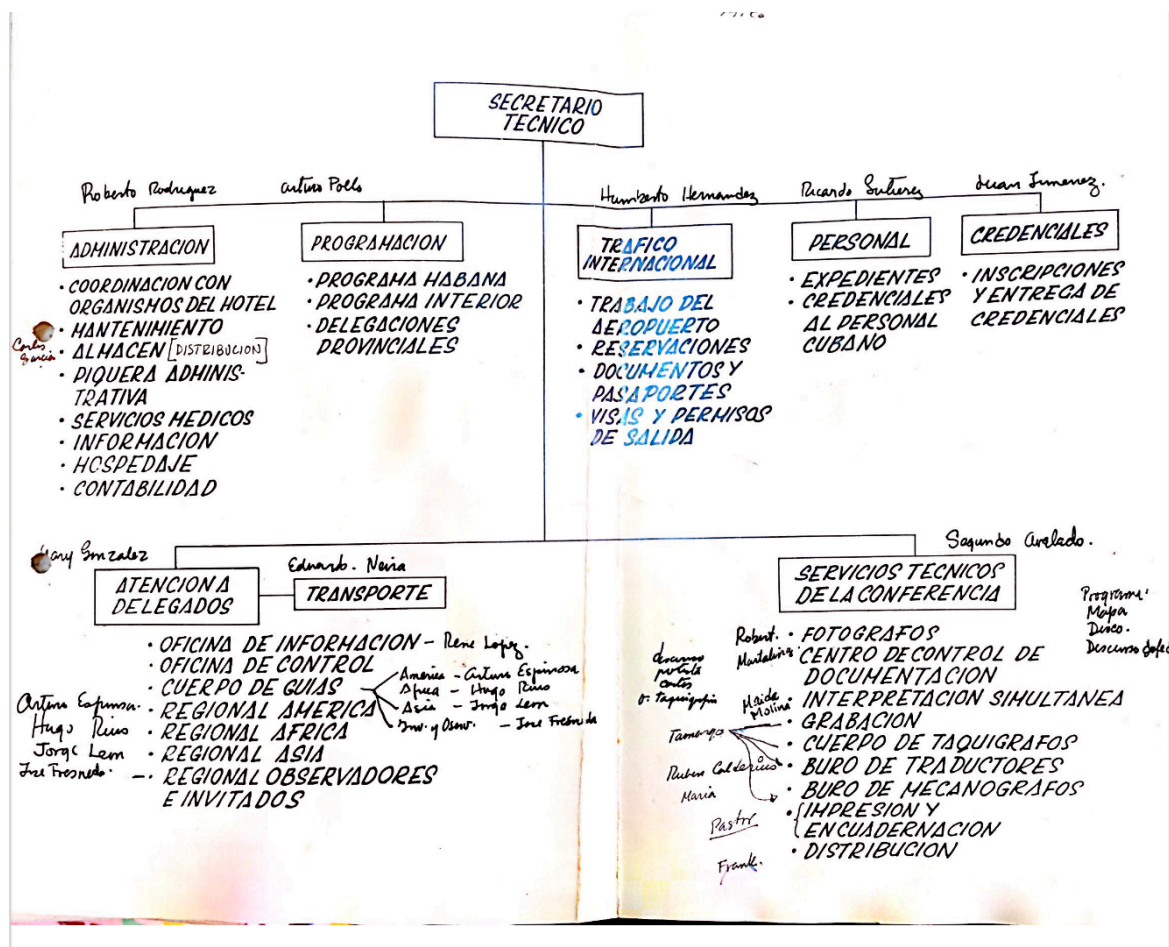 SECRETARIO
TECNICO
Roberto Rodriguez
Arturo Pollo
Humberto Hernandez
Ricardo Gutierez
Juan Jimenez.
ADMINISTRACION
· COORDINACION CON
ORGANISMOS DEL HOTEL
· MANTENIMIENTO
Carlos
Garcia
· ALMACEN [DISTRIBUCION]
· PIQUERA ADMINIS-
TRATIVA
· SERVICIOS MEDICOS
· INFORMACION
· HOSPEDAJE
· CONTABILIDAD
PROGRAMACION
· PROGRAMA HABANA
· PROGRAMA INTERIOR
· DELEGACIONES
PROVINCIALES
TRAFICO
INTERNACIONAL
· TRABAJO DEL
AEROPUERTO
· RESERVACIONES
· DOCUMENTOS Y
PASAPORTES
· VISAS Y PERMISOS
DE SALIDA
PERSONAL
· EXPEDIENTES
· CREDENCIALES
AL PERSONAL
CUBANO
CREDENCIALES
· INSCRIPCIONES
Y ENTREGA DE
CREDENCIALES
Mary Gonzalez
ATENCION A
DELEGADOS
Eduardo. Neira
TRANSPORTE
· OFICINA DE INFORMACION - Rene Lopez.
· OFICINA DE CONTROL
· CUERPO DE GUIAS
America - Arturo Espinosa
Africa - Hugo Rius
Asia - Jorge Lem
Inv. y Observ. - Jose Fresneda
Arturo Espinosa.
· REGIONAL AMERICA
Hugo Rius
· REGIONAL AFRICA
Jorge Lem
· REGIONAL ASIA
Jose Fresnedo. -
· REGIONAL OBSERVADORES
E INVITADOS
Segundo
SERVICIOS TECNICOS
DE LA CONFERENCIA
Programa
Mapa
Disco.
Discurso
Robert.
· FOTOGRAFOS
· CENTRO DE CONTROL DE
DOCUMENTACION
Maida
Molina
· INTERPRETACION SIMULTANEA
· GRABACION
Tamargo
· CUERPO DE TAQUIGRAFOS
Ruben Calderius
· BURO DE TRADUCTORES
Maria
· BURO DE MECANOGRAFOS
Pastor
· IMPRESION Y
ENCUADERNACION
Frank.
· DISTRIBUCION